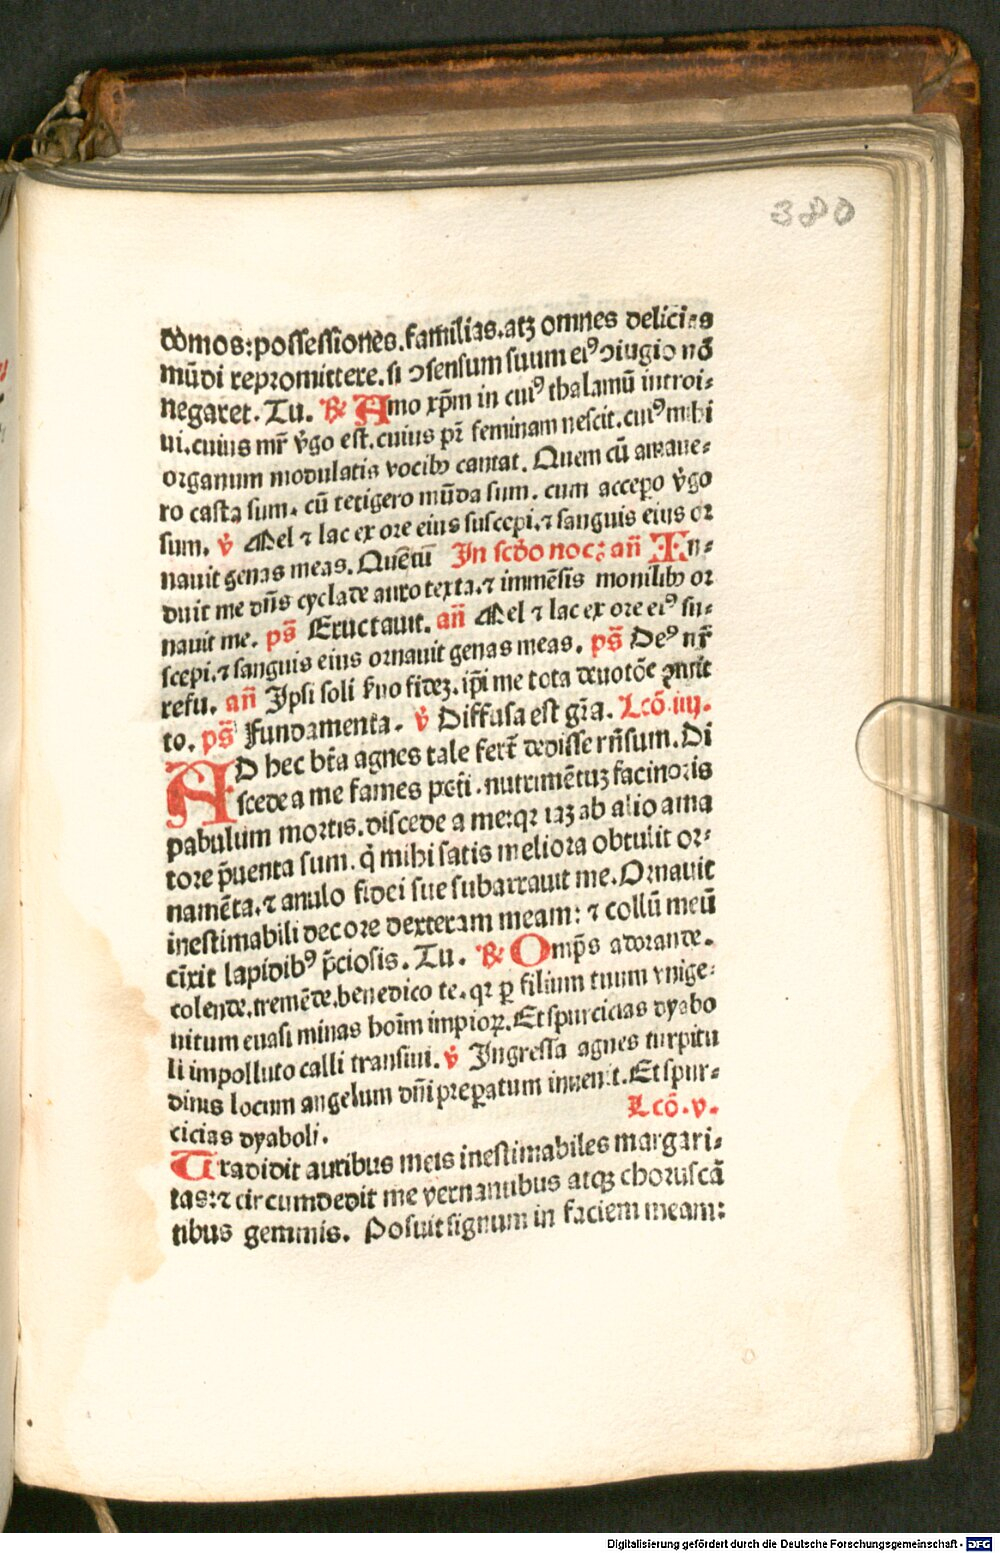 380
domos: possessiones. familias. atqꝫ omnes delicias
mūdi repromittere. si ↄsensum suum eiꝰ ↄiugio nō
negaret. Tu. ℟ Amo xp̄m in cuiꝰ thalamū introi⸗
ui. cuius mr̄ v̄go est. cuius pr̄ feminam nescit. cuiꝰ mihi
organum modulatis vocibꝫ cantat. Quem cū amaue⸗
ro casta sum. cū tetigero mūda sum. cum accepero v̄go
sum. ℣ Mel ⁊ lac ex ore eius suscepi. ⁊ sanguis eius or
nauit genas meas. Quē cū In scd̄o noc⁊ an̄ In⸗
duit me dn̄s cyclade auro texta. ⁊ immēsis monilibꝫ or
nauit me. ps̄ Eructauit. an̄ Mel ⁊ lac ex ore eiꝰ su⸗
scepi. ⁊ sanguis eius ornauit genas meas. ps̄ Deꝰ nr̄
refu. an̄ Ipsi soli ẜuo fidez. ip̄i me tota deuotōe ꝯmit
to. ps̄ Fundamenta. ℣ Diffusa est gr̄a. Lcō. iiij.
AD hec bt̄a agnes tale fert̄ dedisse rn̄sum. Di
scede a me fames pct̄i. nutrimētuz facinoris
pabulum mortis. discede a me: qꝛ iaz ab alio ama
tore p̄uenta sum. q̇ mihi satis meliora obtulit or⸗
namēta. ⁊ anulo fidei sue subarrauit me. Ornauit
inestimabili decore dexteram meam: ⁊ collū meū
cīxit lapidibꝰ p̄ciosis. Tu. ℟ Omp̄s adorande.
colende. tremēde. benedico te. qꝛ ꝑ filium tuum vnige⸗
nitum euasi minas hoīm impioꝝ. Et spurcicias dyabo
li impolluto calli transiui. ℣ Ingressa agnes turpitu
dinis locum angelum dn̄i preꝑatum inuenit. Et spur⸗
cicias dyaboli. Lcō. v.
Tradidit auribus meis inestimabiles margari⸗
tas: ⁊ circumdedit me vernantibus atqꝫ choruscā
tibus gemmis. Posuit signum in faciem meam:
Digitalisierung gefördert durch die Deutsche Forschungsgemeinschaft - DFG